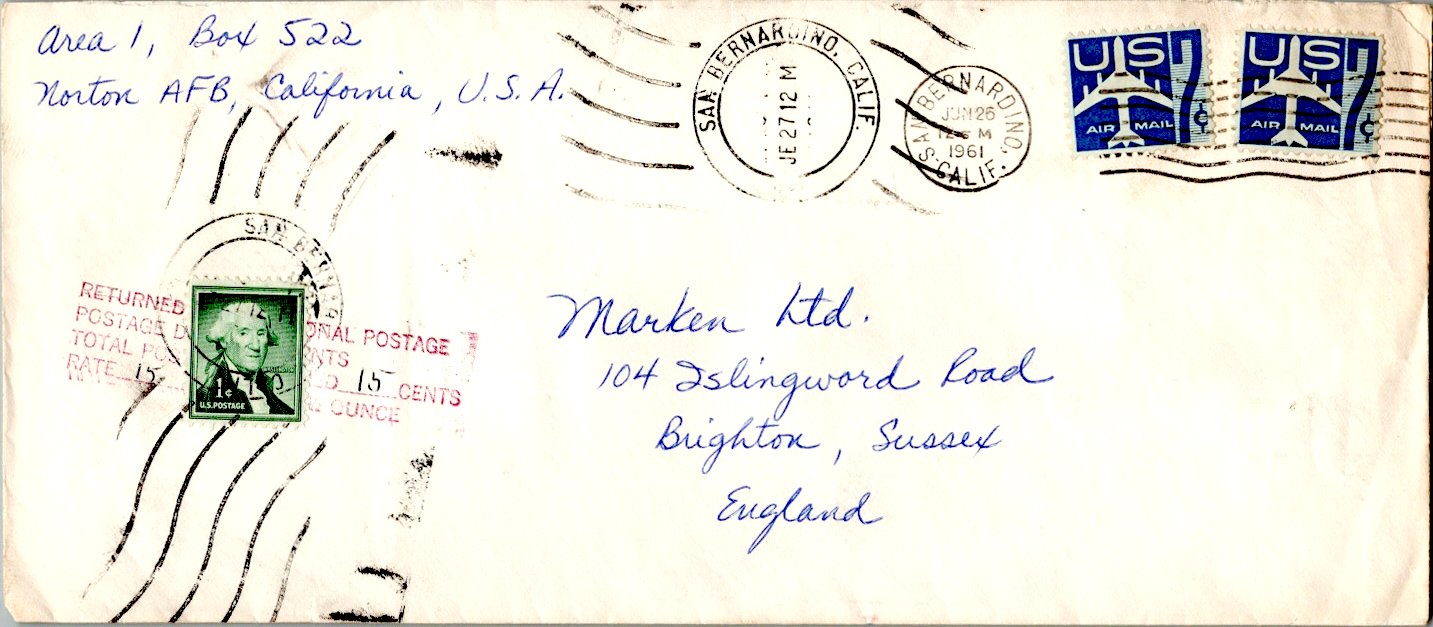 Area 1, Box 522
Norton AFB, California, U.S.A.
SAN BERNARDINO, CALIF.
JE27 12 M
SAN BERNARDINO,
CALIF.
JUN 26
M
1961
US
AIR MAIL
7¢
US
AIR MAIL
7¢
SAN BERNAR
RETURNED ONAL POSTAGE
POSTAGE D NTS
TOTAL POS
RATE 15 D 15 CENTS
OUNCE
1¢
U.S. POSTAGE
Marken Ltd.
104 Islingword Road
Brighton, Sussex
England